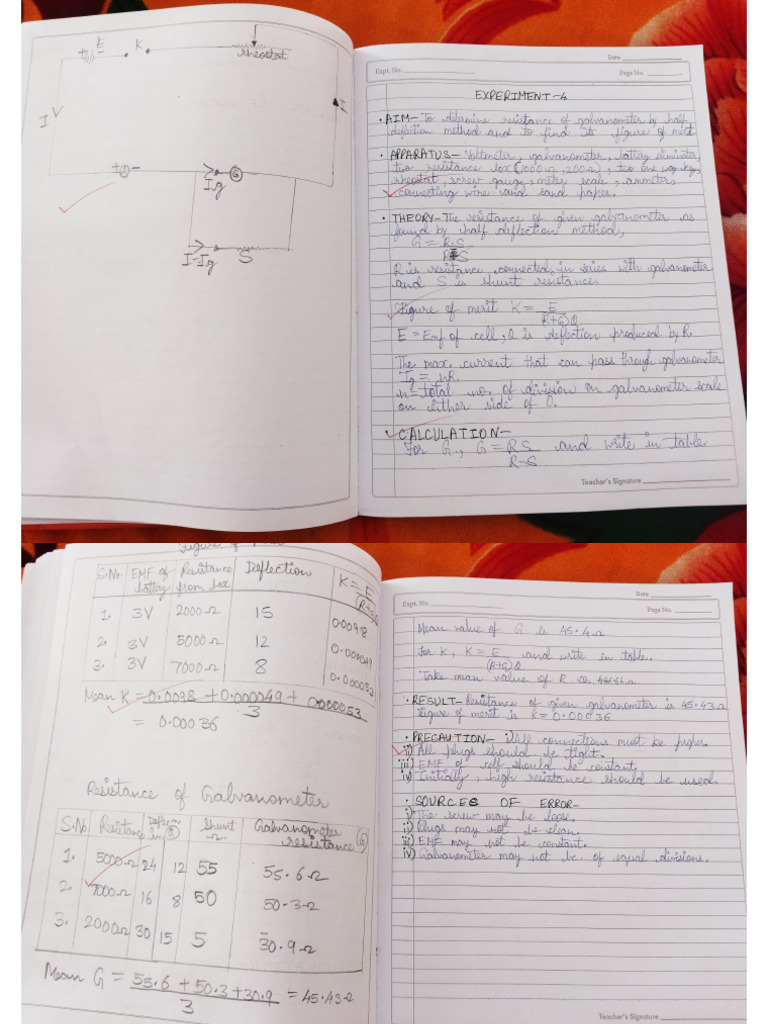 + E K
rheostat
I
I
+ -
Ig
G
I-Ig S
Date
Expt. No.
Page No.
EXPERIMENT-4
• AIM- To determine resistance of galvanometer by half
deflection method and to find its figure of merit
• APPARATUS- Voltmeter, galvanometer, battery eliminator,
two resistance box (1000Ω, 200Ω), two one way key,
rheostat, screw gauge, meter scale, ammeter,
connecting wire and sand paper.
• THEORY- The resistance of given galvanometer as
found by half deflection method,
G = R.S
R-S
R is resistance connected in series with galvanometer
and S is shunt resistance.
Figure of merit K = E
(R+G)Q
E = Emf of cell, Q is deflection produced by R.
The max. current that can pass through galvanometer
Ig = nK.
n = total no. of division on galvanometer scale
on either side of 0.
• CALCULATION-
For G, G = RS and write in table
R-S
Teacher's Signature
Figure of
S.No. EMF of battery Resistance from box Deflection K = E
1. 3V 2000Ω 15 0.0098
2. 3V 5000Ω 12 0.000049
3. 3V 7000Ω 8 0.000053
Mean K = 0.0098 + 0.000049 + 0.000053
3
= 0.00036
Resistance of Galvanometer
S.No Resitance Shunt Ω Galvanometer resistance (G)
1. 5000Ω 24 12 55 55.6Ω
2. 7000Ω 16 8 50 50.3Ω
3. 2000Ω 30 15 5 30.9Ω
Mean G = 55.6 + 50.3 + 30.9 = 45.43Ω
3
Date
Expt. No.
Page No.
Mean value of G is 45.4Ω
For K, K = E and write in table.
(R+G)Q
Take mean value of R
• RESULT- Resistance of given galvanometer is 45.43Ω
Figure of merit is K = 0.00036
• PRECAUTION- i) All connections must be proper.
ii) All plugs should be tight.
iii) EMF of cell should be constant.
iv) Initially, high resistance should be used.
• SOURCES OF ERROR-
i) The screw may be loose.
ii) Plugs may not be clean.
iii) EMF may not be constant.
iv) Galvanometer may not be of equal divisions.
Teacher's Signature